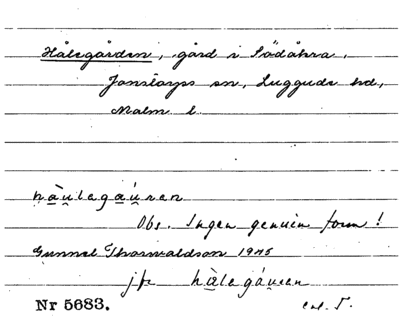 Hålegården, gård i Södåkra,
Jonstorps sn, Luggude hd,
Malm l.
hàu̯lagáu̯ren
Obs. Ingen genuin form!
Gunnel Thorwaldson 1945
jfr hàlegáu̯ren
Nr 5683. enl. T.